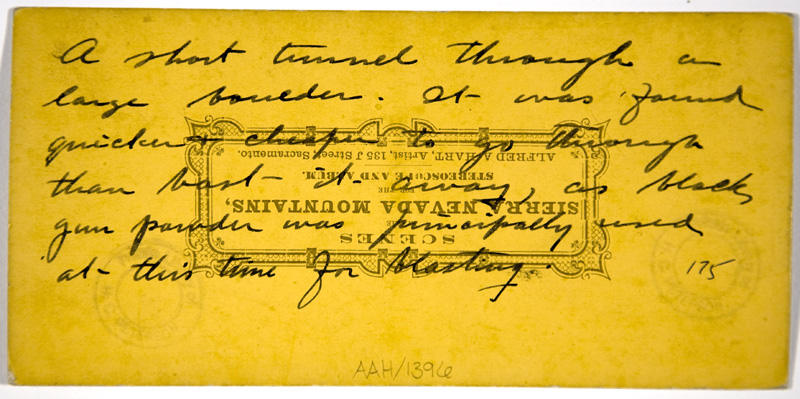 A short tunnel through a
large boulder. It was found
quicker + cheaper to go through
than bast it away, as black
gun powder was principally used
at this time for blasting.
175
AAH/1396
SCENES
IN THE
SIERRA NEVADA MOUNTAINS,
FOR THE
STEREOSCOPE AND ALBUM.
ALFRED A. HART, Artist, 135 J Street, Sacramento.